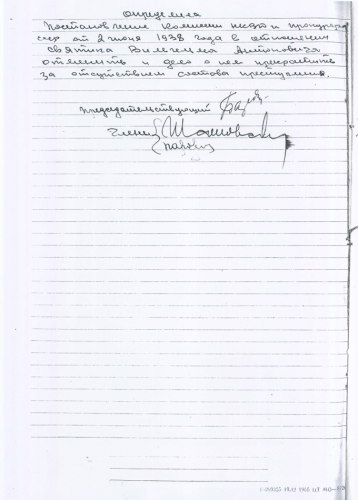 определила
Постановление комиссии НКВД и прокурора
СССР от 2 июня 1938 года в отношении
Святина Вильгельма Антоновича
отменить и дело о нем прекратить
за отсутствием состава преступления.
Председательствующий
Члены